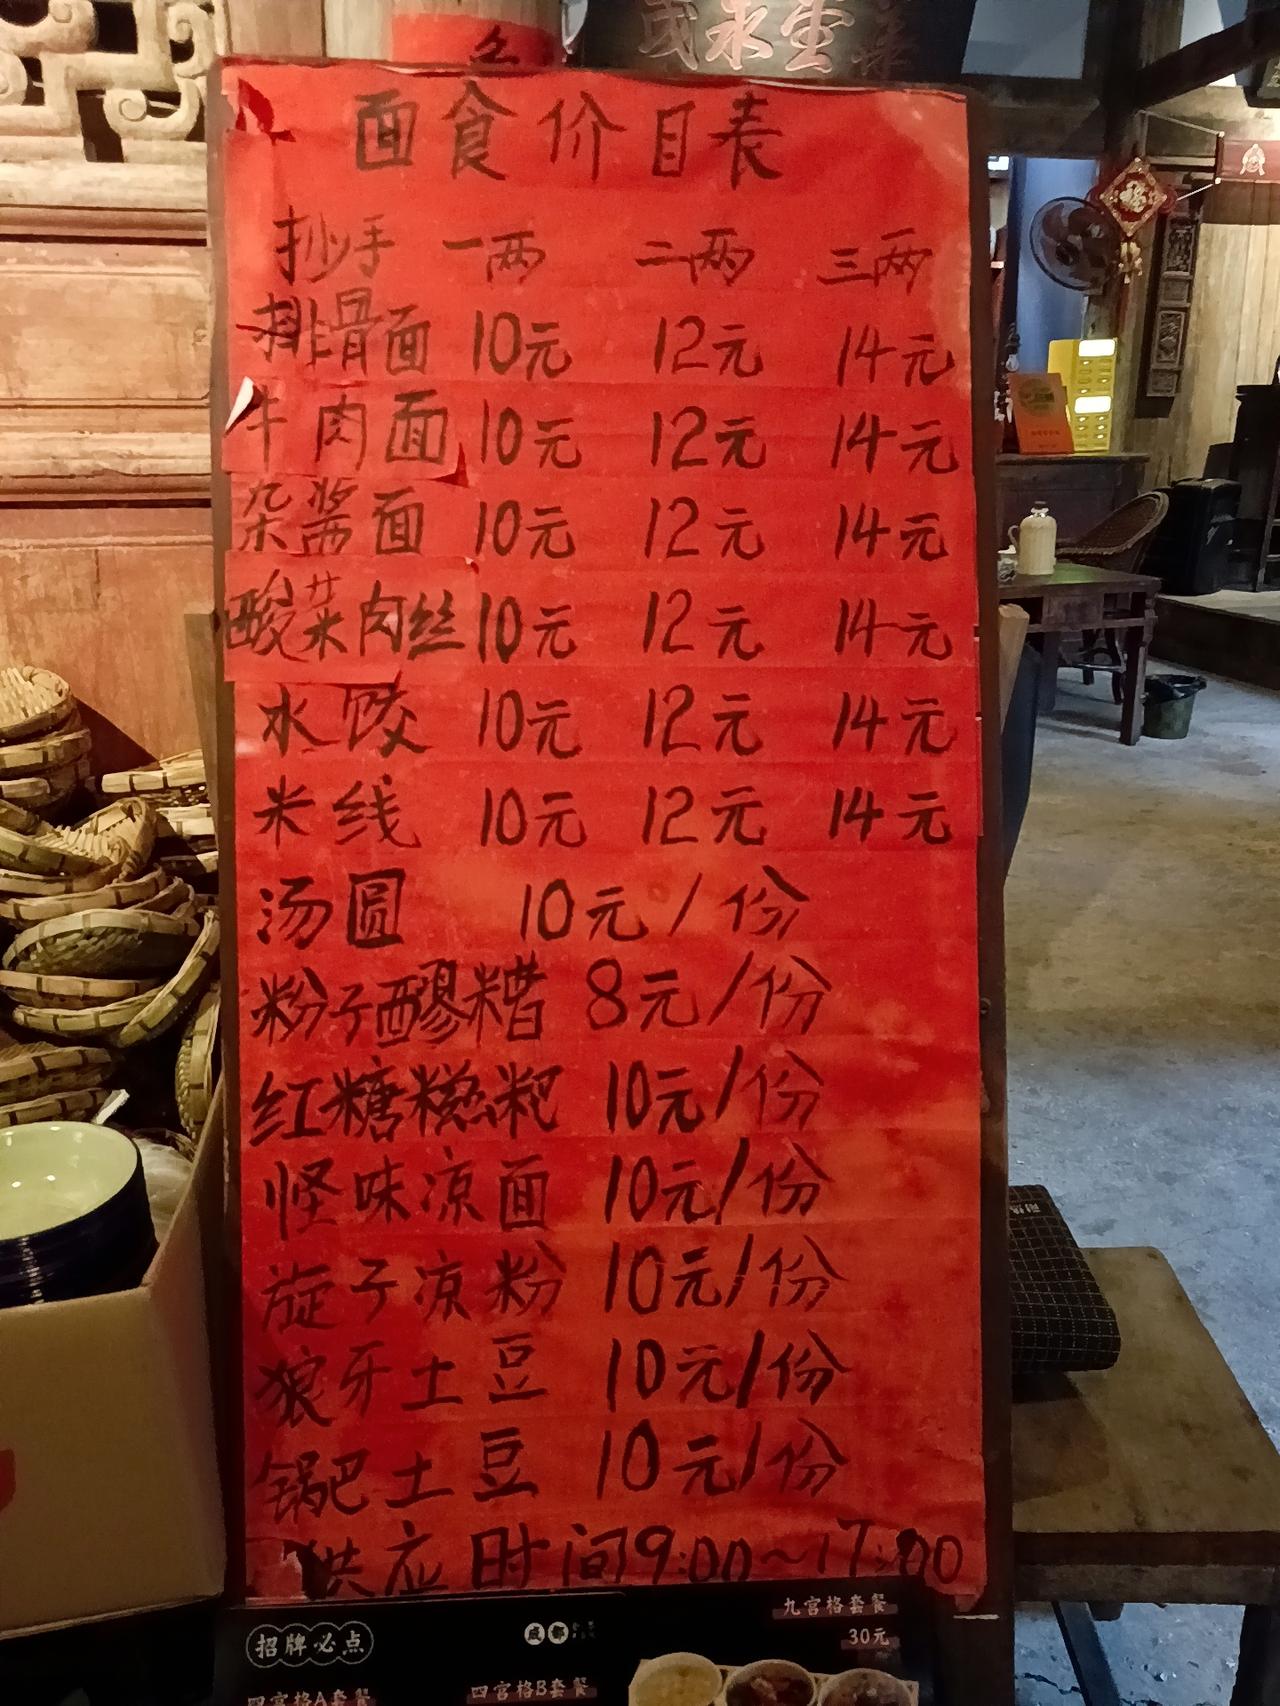 茂永堂
面食价目表
抄手 一两 二两 三两
排骨面 10元 12元 14元
牛肉面 10元 12元 14元
杂酱面 10元 12元 14元
酸菜肉丝 10元 12元 14元
水饺 10元 12元 14元
米线 10元 12元 14元
汤圆 10元/份
粉子醪糟 8元/份
红糖糍粑 10元/份
怪味凉面 10元/份
旋子凉粉 10元/份
狼牙土豆 10元/份
锅巴土豆 10元/份
供应时间9:00~17:00
九宫格套餐
30元
招牌必点
成都
四宫格A套餐
四宫格B套餐